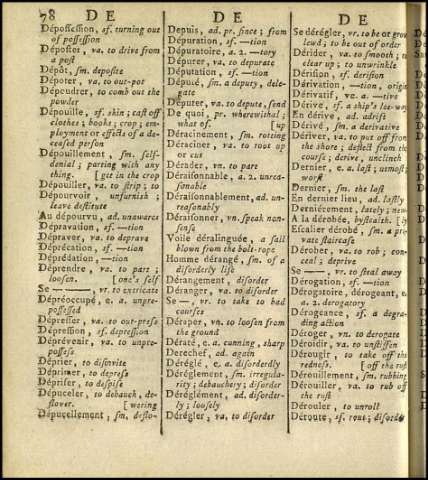 78 DE DE DE
Dépossession, sf. turning out
of possession
Déposter, va. to drive from
a post
Dépôt, sm. deposite
Dépoter, va. to out-pot
Dépoudrer, to comb out the
powder
Dépouille, sf. skin; cast off
clothes; books; crop; em-
ployment or effects of a de-
ceased person
Dépouillement, sm. self-
denial; parting with any
thing. [get in the crop
Dépouiller, va. to strip; to
Dépourvoir, unfurnish;
leave destitute
Au dépourvu, ad. unawares
Dépravation, sf. —tion
Dépraver, va. to deprave
Déprécation, sf. —tion
Déprédation, —tion
Déprendre, va. to part;
loosen. [one's self
Se ——, vr. to extricate
Dépréoccupé, e. a. unpre-
possessed
Dépresser, va. to out-press
Dépression, sf. depression
Déprévenir, va. to unpre-
possess
Déprier, to disinvite
Déprimer, to depress
Dépriser, to despise
Dépuceler, to debauch, de-
flower. [wering
Dépucellement, sm. deflo-
Depuis, ad. pr. since; from
Dépuration, sf. —tion
Dépuratoire, a. 2. —tory
Dépurer, va. to depurate
Députation, sf. —tion
Député, sm. a deputy, dele-
gate
Députer, va. to depute, send
De quoi, pr. wherewithal;
what of. [up
Déracinement, sm. rotting
Déraciner, va. to root up
or cut
Dérader, vn. to part
Déraisonnable, a. 2. unrea-
sonable
Déraisonnablement, ad. un-
reasonably
Déraisonner, vn. speak non-
sense
Voile déralinguée, a sail
blown from the bolt-rope
Homme dérangé, sm. of a
disorderly life
Dérangement, disorder
Déranger, va. to disorder
Se —, vr. to take to bad
courses
Déraper, vn. to loosen from
the ground
Dératé, e. a. cunning, sharp
Derechef, ad. again
Déréglé, e. a. disorderly
Déréglement, sm. irregula-
rity; debauchery; disorder
Déréglément, ad. disorder-
ly; loosely
Dérégler, va. to disorder
Se dérégler, vr. to be or grow
lewd; to be out of order
Dérider, va. to smooth; to
clear up; to unwrinkle
Dérision, sf. derision
Dérivation, —tion, origin
Dérivatif, ve. a. —tive
Dérive, sf. a ship's lee-way
En dérive, ad. adrift
Dérivé, sm. a derivative
Dériver, va. to put off from
the shore; deflect from the
course; derive, unclinch
Dernier, e. a. last; utmost;
worst
Dernier, sm. the last
En dernier lieu, ad. lastly
Dernièrement, lately; new
A la dérobée, by stealth. [ly
Escalier dérobé, sm. a pri-
vate staircase
Dérober, va. to rob; con-
ceal; deprive
Se ——, vr. to steal away
Dérogation, sf. —tion
Dérogatoire, dérogeant, e.
a. 2. derogatory
Dérogeance, sf. a degra-
ding action
Déroger, vn. to derogate
Déroidir, va. to unstiffen
Dérougir, to take off the
redness. [off the rust
Dérouillement, sm. rubbing
Dérouiller, va. to rub off
the rust
Dérouler, to unroll
Déroute, sf. rout; disorder